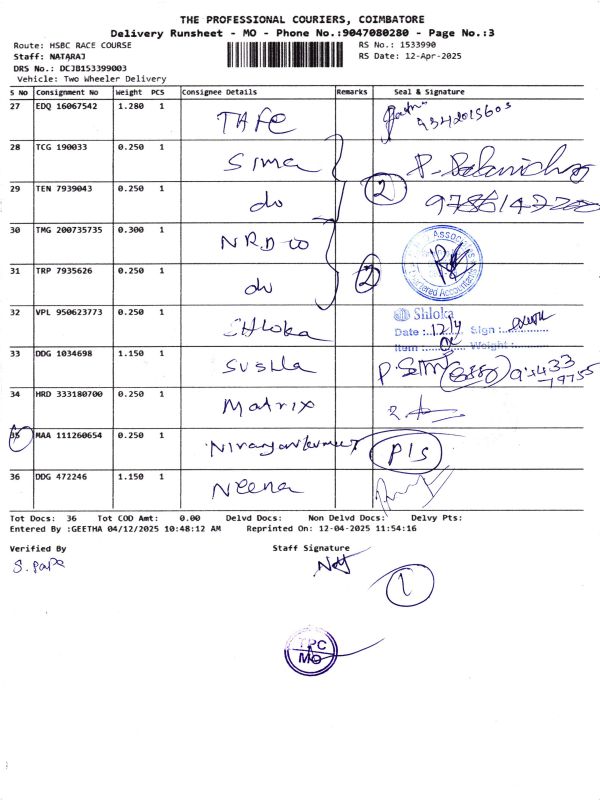 THE PROFESSIONAL COURIERS, COIMBATORE
Delivery Runsheet - MO - Phone No.:9047080280 - Page No.:3
Route: HSBC RACE COURSE RS No.: 1533990
Staff: NATARAJ RS Date: 12-Apr-2025
DRS No.: DCJB153399003
Vehicle: Two Wheeler Delivery
S No Consignment No Weight PCS Consignee Details Remarks Seal & Signature
27 EDQ 16067542 1.280 1 TAFE
28 TCG 190033 0.250 1 Sima
29 TEN 7939043 0.250 1 do 2
30 TMG 200735735 0.300 1 NRD
31 TRP 7935626 0.250 1 do 2
32 VPL 950623773 0.250 1 Shloka Shloka
Date : 12/4 Sign :
Item : Weight :
33 DDG 1034698 1.150 1 Susila
34 HRD 333180700 0.250 1 Matrix
35 MAA 111260654 0.250 1 P/S
36 DDG 472246 1.150 1 Neena
Tot Docs: 36 Tot COD Amt: 0.00 Delvd Docs: Non Delvd Docs: Delvy Pts:
Entered By :GEETHA 04/12/2025 10:48:12 AM Reprinted On: 12-04-2025 11:54:16
Verified By Staff Signature
1
TPC
MO